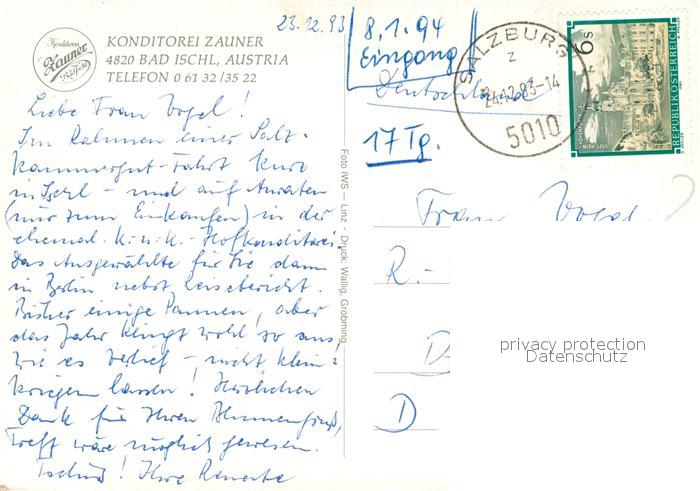 Konditorei
Zauner
Bad Ischl
KONDITOREI ZAUNER
4820 BAD ISCHL, AUSTRIA
TELEFON 0 61 32/35 22
23.12.83
8.1.84
Eingang
Deutschland
17 Tg.
SALZBURG
2
24.12.83-14
5010
6 S
REPUBLIK ÖSTERREICH
Liebe Frau Vogel!
Im Rahmen einer Salz-
kammergut-Fahrt kurz
in Ischl - und auf Anraten
(nur zum Einkaufen) in der
ehemal. k.u.k.-Hofkonditorei.
Das Ausgewählte für Sie dann
in Berlin nebst Reisebericht.
Bisher einige Pannen, aber
das Jahr klingt wohl so aus,
wie es verlief - nicht klein-
kriegen lassen! Herzlichen
Dank für Ihren Blumengruß,
Treff wäre möglich gewesen.
Tschüß! Ihre Renate
Foto IWS — Linz · Druck: Wallig, Gröbming
Frau Vogel
R.-
D
D
privacy protection
Datenschutz